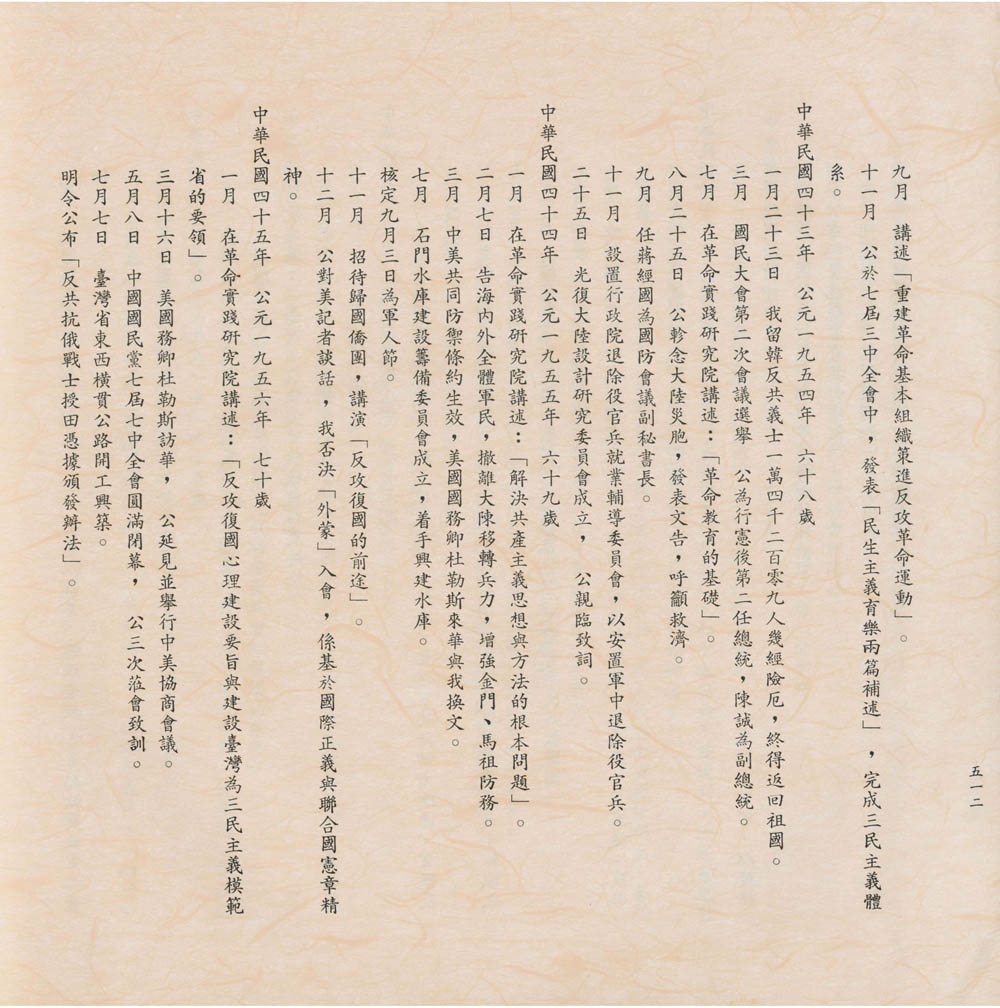 五一二
九月　講述「重建革命基本組織策進反攻革命運動」。
十一月　公於七屆三中全會中，發表「民生主義育樂兩篇補述」，完成三民主義體
系。
中華民國四十三年　公元一九五四年　六十八歲
一月二十三日　我留韓反共義士一萬四千二百零九人幾經險厄，終得返回祖國。
三月　國民大會第二次會議選舉　公為行憲後第二任總統，陳誠為副總統。
七月　在革命實踐研究院講述：「革命教育的基礎」。
八月二十五日　公軫念大陸災胞，發表文告，呼籲救濟。
九月　任蔣經國為國防會議副秘書長。
十一月　設置行政院退除役官兵就業輔導委員會，以安置軍中退除役官兵。
二十五日　光復大陸設計研究委員會成立，　公親臨致詞。
中華民國四十四年　公元一九五五年　六十九歲
一月　在革命實踐研究院講述：「解決共產主義思想與方法的根本問題」。
二月七日　告海內外全體軍民，撤離大陳移轉兵力，增強金門、馬祖防務。
三月　中美共同防禦條約生效，美國國務卿杜勒斯來華與我換文。
七月　石門水庫建設籌備委員會成立，着手興建水庫。
核定九月三日為軍人節。
十一月　招待歸國僑團，講演「反攻復國的前途」。
十二月　公對美記者談話，我否決「外蒙」入會，係基於國際正義與聯合國憲章精
神。
中華民國四十五年　公元一九五六年　七十歲
一月　在革命實踐研究院講述：「反攻復國心理建設要旨與建設臺灣為三民主義模範
省的要領」。
三月十六日　美國務卿杜勒斯訪華，　公延見並舉行中美協商會議。
五月八日　中國國民黨七屆七中全會圓滿閉幕，　公三次蒞會致訓。
七月七日　臺灣省東西橫貫公路開工興築。
明令公布「反共抗俄戰士授田憑據頒發辦法」。